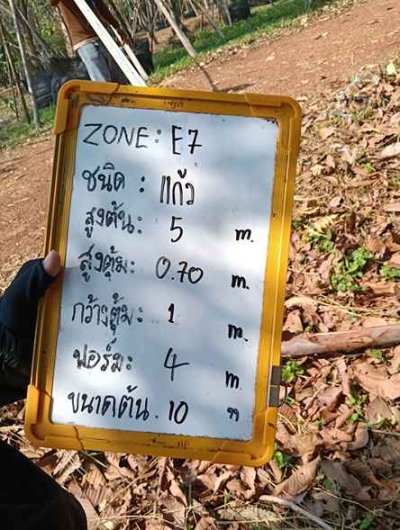 ZONE: E7
ชนิด : แก้ว
สูงต้น: 5 m.
สูงตุ้ม: 0.70 m.
กว้างตุ้ม: 1 m.
ฟอร์ม: 4 m
ขนาดต้น . 10 "